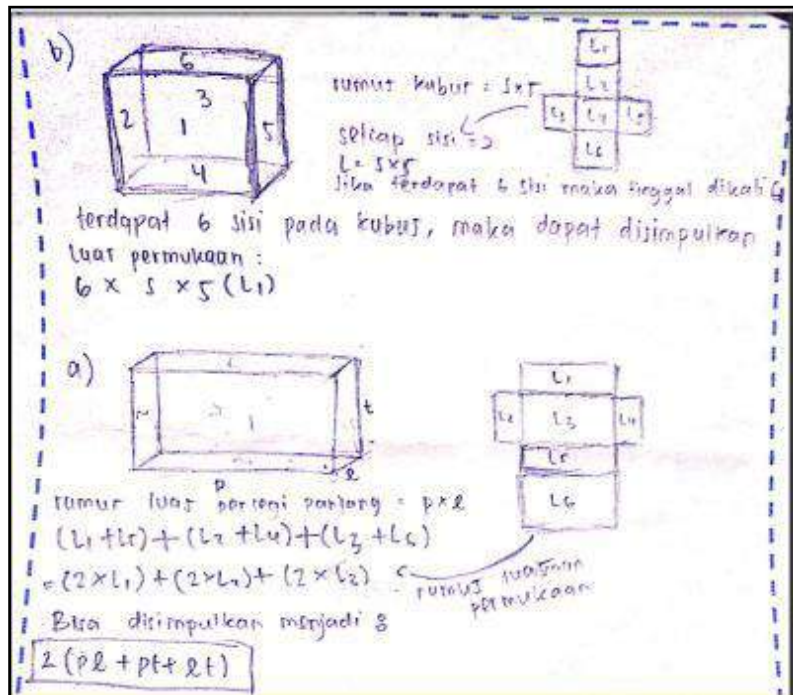 b)
6
3
2
1
5
4
rumus kubus = s x s
L1
L2
L3 L4 L5
L6
setiap sisi =>
L = s x s
Jika terdapat 6 sisi maka tinggal dikali 6
terdapat 6 sisi pada kubus, maka dapat disimpulkan
luas permukaan :
6 x s x s (L1)
a)
t
l
p
L1
L2 L3 L4
L5
L6
rumus luas persegi panjang = p x l
(L1 + L5) + (L2 + L4) + (L3 + L6)
= (2 x L1) + (2 x L2) + (2 x L3)
rumus
permukaan
Bisa disimpulkan menjadi :
2 (pl + pt + lt)